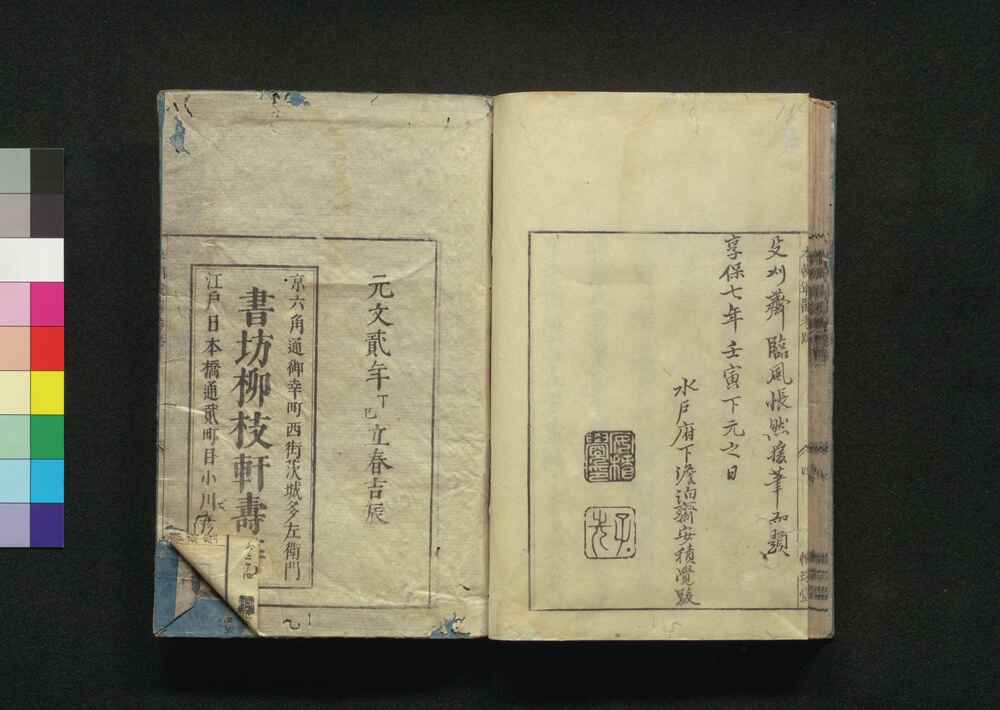 臨風悵然援筆而題
享保七年壬寅下元之日
水戸府下澹泊齋安積覺跋
元文貳年丁巳立春吉辰
京六角通御幸町西街茨城多左衛門
書坊柳枝軒壽
江戸日本橋通貳町目小川